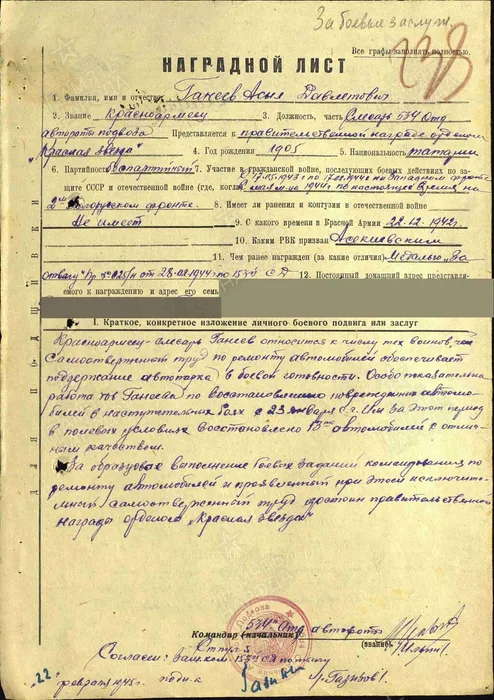 За боевые заслуги
Все графы заполнять полностью.
238
НАГРАДНОЙ ЛИСТ
1. Фамилия, имя и отчество Ганеев Асыл Давлетович
2. Звание Красноармеец 3. Должность, часть Слесарь 534 Отд.
авторотп подвоза Представляется к правительственной награде ордену
"Красная звезда" 4. Год рождения 1905 5. Национальность татарин
6. Партийность Беспартийный 7. Участие в гражданской войне, последующих боевых действиях по за-
щите СССР и отечественной войне (где, когда) 17.05.1943 г. по 17.02.1944 на Западном фронте
в мая м-це 1944 г. по настоящее время на
2м Белорусском фронте. 8. Имеет ли ранения и контузии в отечественной войне
Не имеет 9. С какого времени в Красной Армии 22.12.1942 г.
10. Каким РВК призван
11. Чем ранее награжден (за какие отличия) Медалью "За
Отвагу" Пр. № 025/н от 28.02.1944 г. по 153 СД 12. Постоянный домашний адрес представляе-
мого к награждению и адрес его семьи
ДЛЯ ПОДШИВКИ
I. Краткое, конкретное изложение личного боевого подвига или заслуг
Красноармеец-слесарь Ганеев относится к числу тех воинов, чей
Самоотверженный труд по ремонту автомобилей обеспечивает
поддержание автопарка в боевой готовности. Особо показательна
работа тов Ганеева по восстановлению поврежденных автомо-
билей в наступательных боях с 23 января с.г. Им за этот период
в полевых условиях восстановлено 13 автомобилей с отлич-
ным качеством.
За образцовое выполнение боевых заданий командования по
ремонту автомобилей и проявленный при этом исключите-
льный самоотверженный труд достоин правительственной
награды ордена "Красная звезда"
Командир (начальник) 534 Отд автороты
(звание)
Согласен: Зам.ком 153 СД по тылу
"22" февраля 1945 г. подп-к